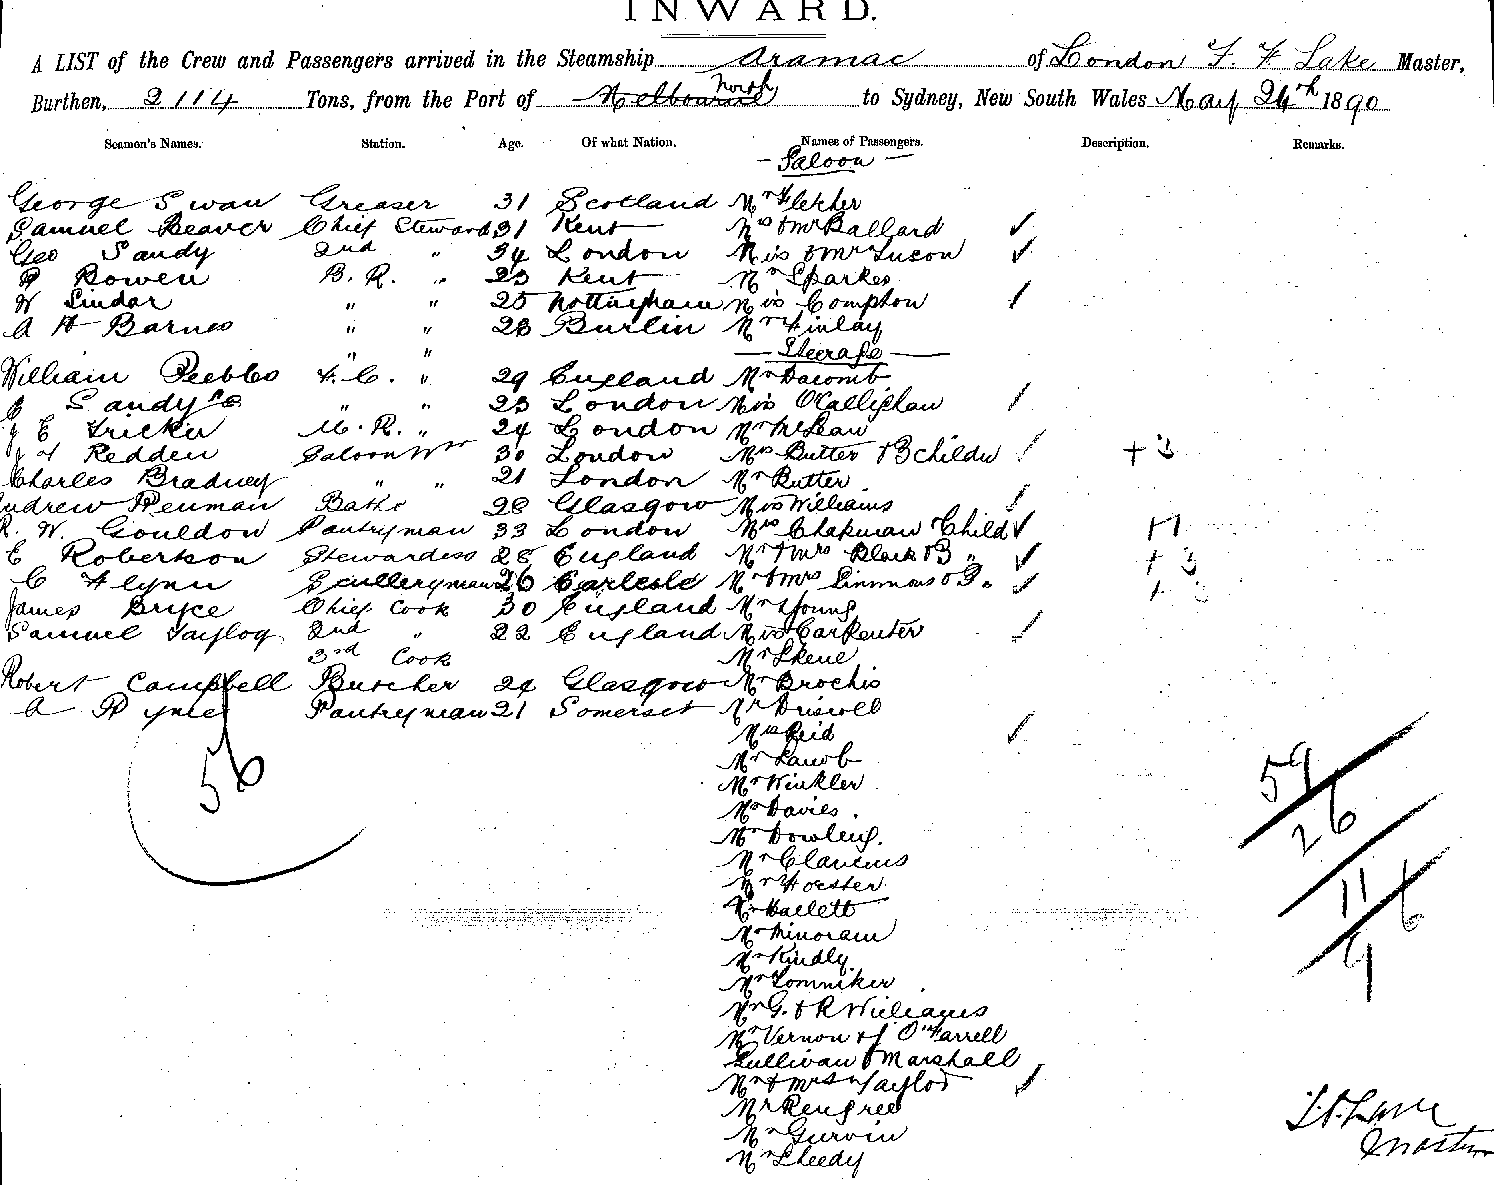 INWARD.
A LIST of the Crew and Passengers arrived in the Steamship Aramac of London F. F Lake Master,
Burthen, 2114 Tons, from the Port of Melbourne North to Sydney, New South Wales May 24th 1890
Seamen's Names. Station. Age. Of what Nation. Names of Passengers. Description. Remarks.
Saloon
George Swan Greaser 31 Scotland Mr Fletcher
Samuel Beaver Chief Steward 31 Kent Mrs & Mr Ballard
Geo Sandy 2nd " 34 London Mis & Mr Luson
Bowen B. R. " 23 Kent Mr Sparkes
W Lindar " " 25 Nottingham Mis Compton
A H Barnes " " 28 Burlin Mr Finlay
" " Steerage
William Peebles F. C. " 29 England Mr Dacomb
Sandys " " 23 London Mis O'Callighan
E Tricker M. R. " 24 London Mr McLean
Redden Saloon Wr 30 London Mrs Butter & 3 childn + 3
Charles Bradney " " 21 London Mr Butter
Andrew Penman Baths 28 Glasgow Mis Williams
R. W. Gouldon Pantryman 33 London Mrs Chapman Child
E Robertson Stewardess 28 England Mr & Mrs Clark & 3 " + 3
C Flynn Sculleryman 26 Carlesle Mr & Mrs Simmons & 3 "
James Bryce Chief Cook 30 England Mr Young
Samuel Taylor 2nd " 22 England Mis Carpenter
3rd Cook Mr Skene
Robert Campbell Butcher 24 Glasgow Mr Brochis
A Pantryman 21 Somerset Mr Driscoll
56
Mis Reid
Mr Lamb
Mr Winkler
Mr Davies.
Mr Dowling.
Mr Clancius
Mr Foester
Mr Hallett
Mr Minoram
Mr Kindly.
Mr Lomniker
Mr G. & R Williams
Mr Vernon & J O'Farrell
Sullivan & Marshall
Mr & Mrs Taylor
Mr Rengree
Mr Gurvin
Mr Sheedy
59
26
11 6
9
Master